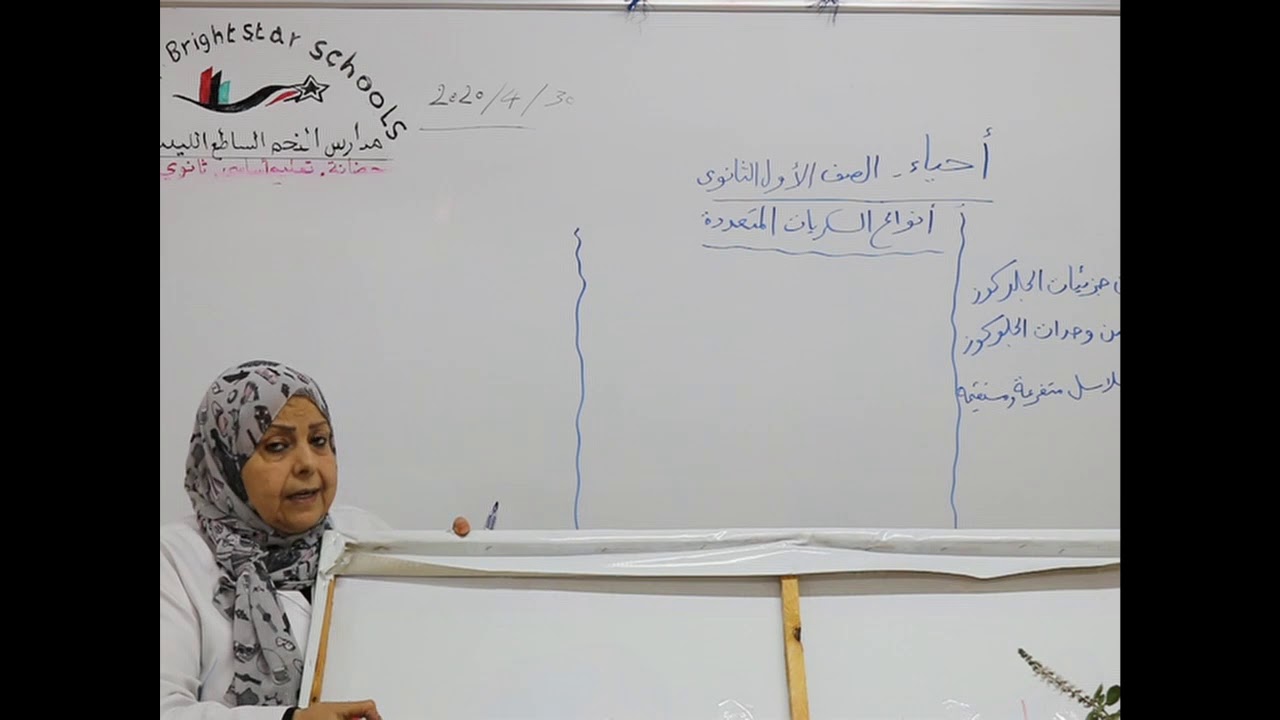 Bright Star Schools
مدارس النجم الساطع الليب
حضانة. تعليم أساسي. ثانوي
2020/4/30
أحياء - الصف الأول الثانوى
أنواع السكريات المتعددة
جزيئات الجلوكوز
من وحدات الجلوكوز
متفرعة ومستقيمة